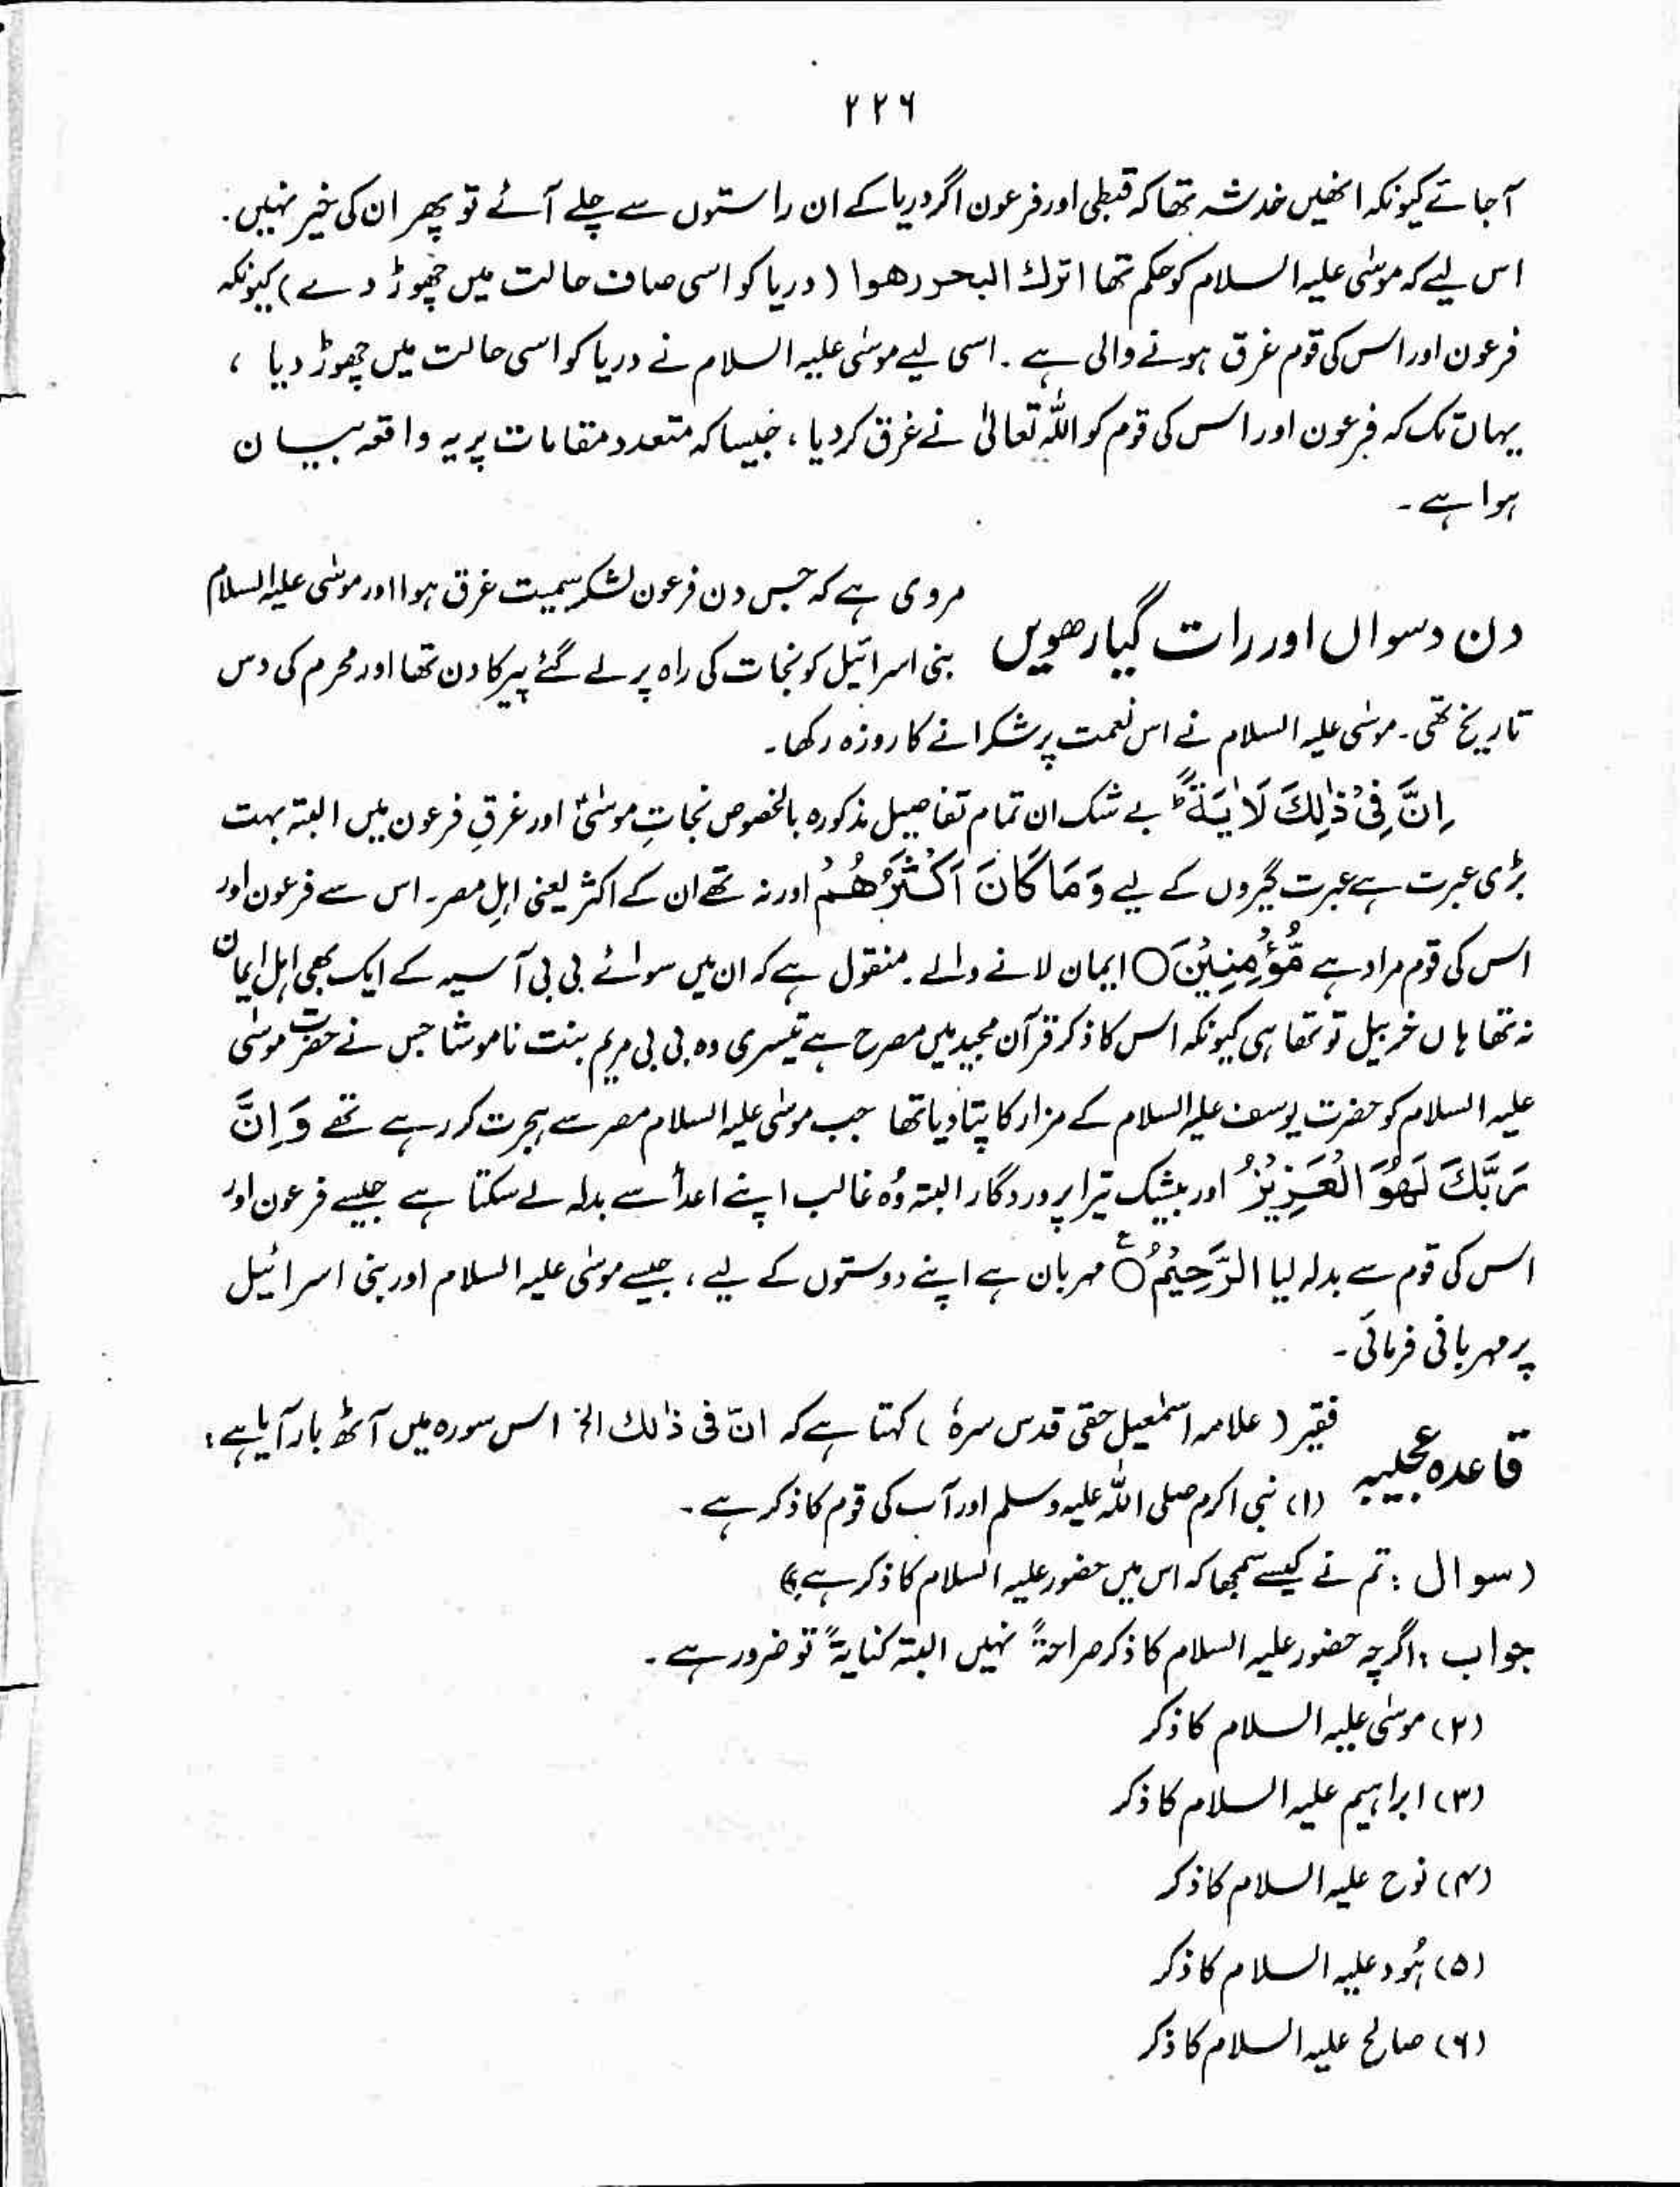 ۲۲۶
آجاتے کیونکہ انھیں خدشہ تھا کہ قبطی اور فرعون اگر دریا کے ان راستوں سے چلے آئے تو پھر ان کی خیر نہیں.
اس لیے کہ موسٰی علیہ السلام کو حکم تھا اترك البحر رهوا (دریا کو اسی صاف حالت میں چھوڑ دے) کیونکہ
فرعون اور اس کی قوم غرق ہونے والی ہے ۔ اسی لیے موسٰی علیہ السلام نے دریا کو اسی حالت میں چھوڑ دیا ،
یہاں تک کہ فرعون اور اس کی قوم کو اللہ تعالیٰ نے غرق کر دیا ، جیسا کہ متعدد مقامات پر یہ واقعہ بیان
ہوا ہے ۔
دن دسواں اور رات گیارھویں
مروی ہے کہ جس دن فرعون لشکر سمیت غرق ہوا اور موسٰی علیہ السلام
بنی اسرائیل کو نجات کی راہ پر لے گئے پیر کا دن تھا اور محرم کی دس
تاریخ تھی ۔ موسٰی علیہ السلام نے اس نعمت پر شکرانے کا روزہ رکھا ۔
اِنَّ فِیْ ذٰلِكَ لَاٰیَةً ؕ بے شک ان تمام تفاصیل مذکورہ بالخصوص نجاتِ موسٰیؑ اور غرقِ فرعون میں البتہ بہت
بڑی عبرت ہے عبرت گیروں کے لیے وَمَا كَانَ اَكْثَرُهُمْ اور نہ تھے ان کے اکثر یعنی اہلِ مصر ۔ اس سے فرعون اور
اس کی قوم مراد ہے مُّؤْمِنِیْنَ○ ایمان لانے والے ۔ منقول ہے کہ ان میں سوائے بی بی آسیہ کے ایک بھی اہل ایمان
نہ تھا ہاں خربیل تو تھا ہی کیونکہ اس کا ذکر قرآن مجید میں مصرح ہے تیسری وہ بی بی مریم بنت ناموشا جس نے حضرت موسٰی
علیہ السلام کو حضرت یوسف علیہ السلام کے مزار کا پتا دیا تھا جب موسٰی علیہ السلام مصر سے ہجرت کر رہے تھے وَاِنَّ
رَبَّكَ لَهُوَ الْعَزِیْزُ اور بیشک تیرا پروردگار البتہ وُہ غالب اپنے اعدأ سے بدلہ لے سکتا ہے جیسے فرعون اور
اس کی قوم سے بدلہ لیا الرَّحِیْمُ ۠○ مہربان ہے اپنے دوستوں کے لیے ، جیسے موسٰی علیہ السلام اور بنی اسرائیل
پر مہربانی فرمائی ۔
قاعدہ عجیبہ
فقیر (علامہ اسمٰعیل حقی قدس سرہٗ) کہتا ہے کہ انّ فی ذٰلك الخ اس سورہ میں آٹھ بار آیا ہے :
(۱) نبی اکرم صلی اللہ علیہ وسلم اور آپ کی قوم کا ذکر ہے ۔
(سوال : تم نے کیسے سمجھا کہ اس میں حضور علیہ السلام کا ذکر ہے؟)
جواب : اگرچہ حضور علیہ السلام کا ذکر صراحۃً نہیں البتہ کنایۃً تو ضرور ہے ۔
(۲) موسٰی علیہ السلام کا ذکر
(۳) ابراہیم علیہ السلام کا ذکر
(۴) نوح علیہ السلام کا ذکر
(۵) ہُود علیہ السلام کا ذکر
(۶) صالح علیہ السلام کا ذکر